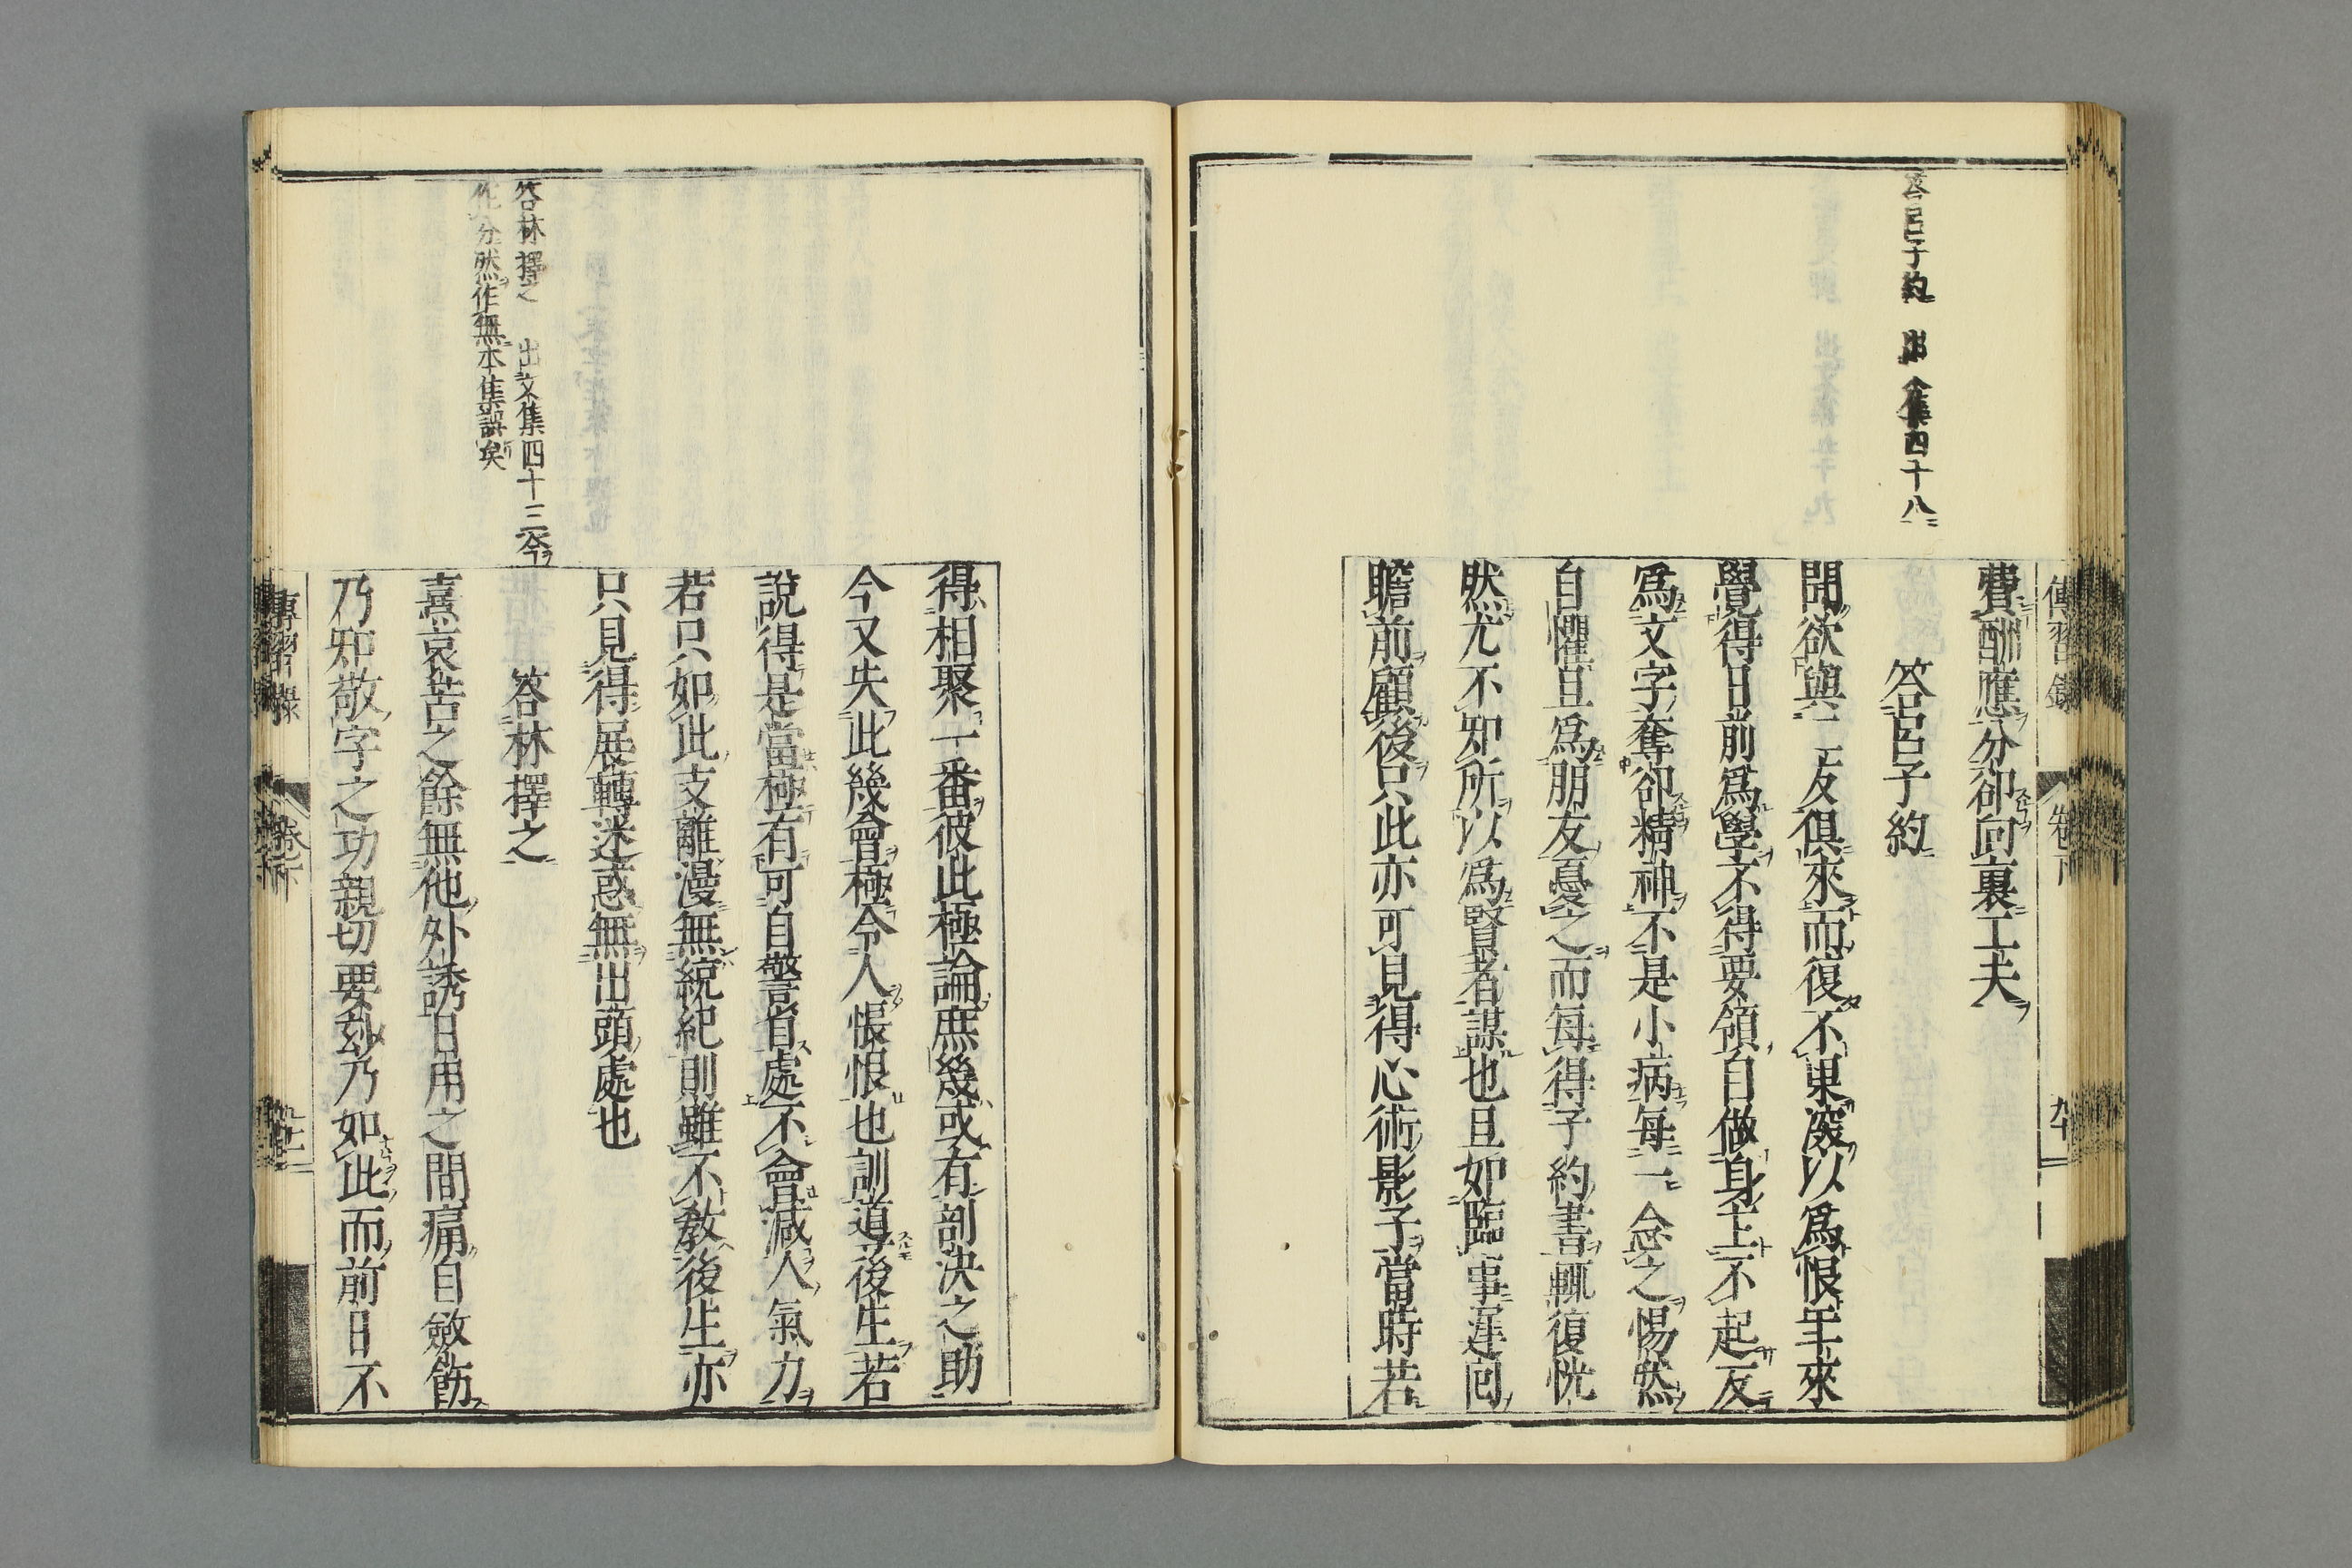 傳習錄
卷下
答呂子約 出 全集四十八
費酬應分卻向裏工夫
答呂子約
聞欲與二友俱來而復不果深以爲恨年來
覺得日前爲學不得要領自做身主不起反
爲文字奪卻精神不是小病每一念之惕然
自懼且爲朋友憂之而每得子約書輒復恍
然尤不知所以爲賢者謀也且如臨事遲囘
瞻前顧後只此亦可見得心術影子當時若
得相聚一番彼此極論庶幾或有剖決之助
今又失此幾會極令人悵恨也訓道後生若
說得是當極有可自警省處不會減人氣力
若只如此支離漫無統紀則雖不教後生亦
只見得展轉迷惑無出頭處也
答林擇之 出文集四十三今
作分然作無本集誤矣
答林擇之
熹哀苦之餘無他外誘日用之間痛自斂飭
乃知敬字之功親切要妙乃如此而前日不
傳習錄
卷下